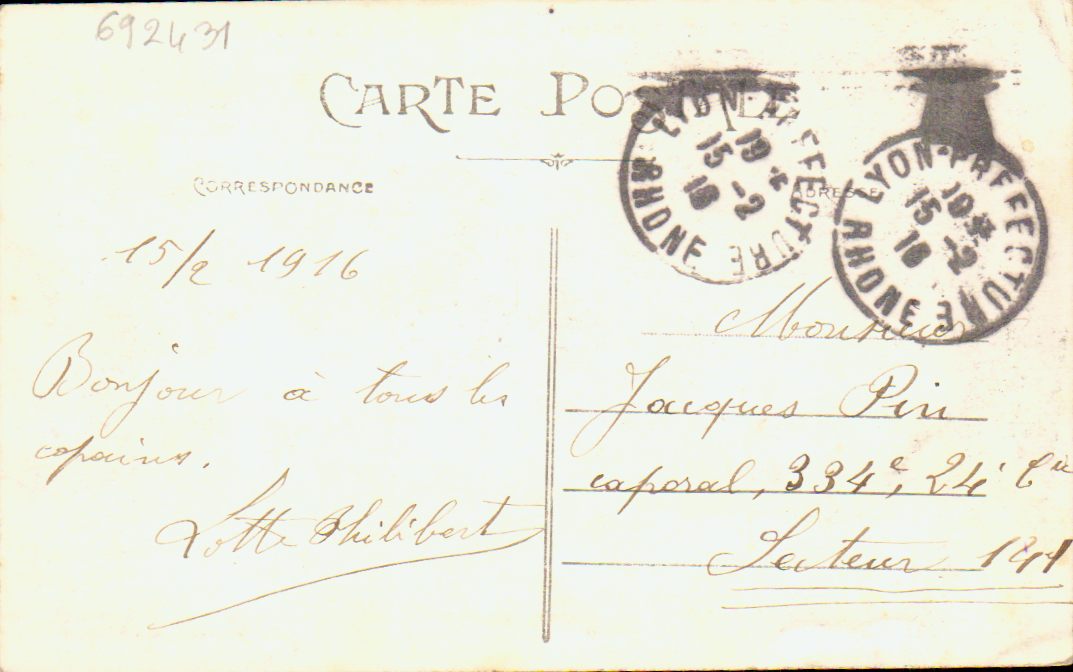 692431
CARTE POSTALE
CORRESPONDANCE
ADRESSE
LYON PRÉFECTURE
19 *
15 -2
16
RHONE
LYON-PRÉFECTURE
19 *
15 -2
16
RHONE
15/2 1916
Bonjour à tous les
copains.
Lotte Philibert
Monsieur
Jacques Pin
caporal, 334e, 24e Cie
Secteur 141